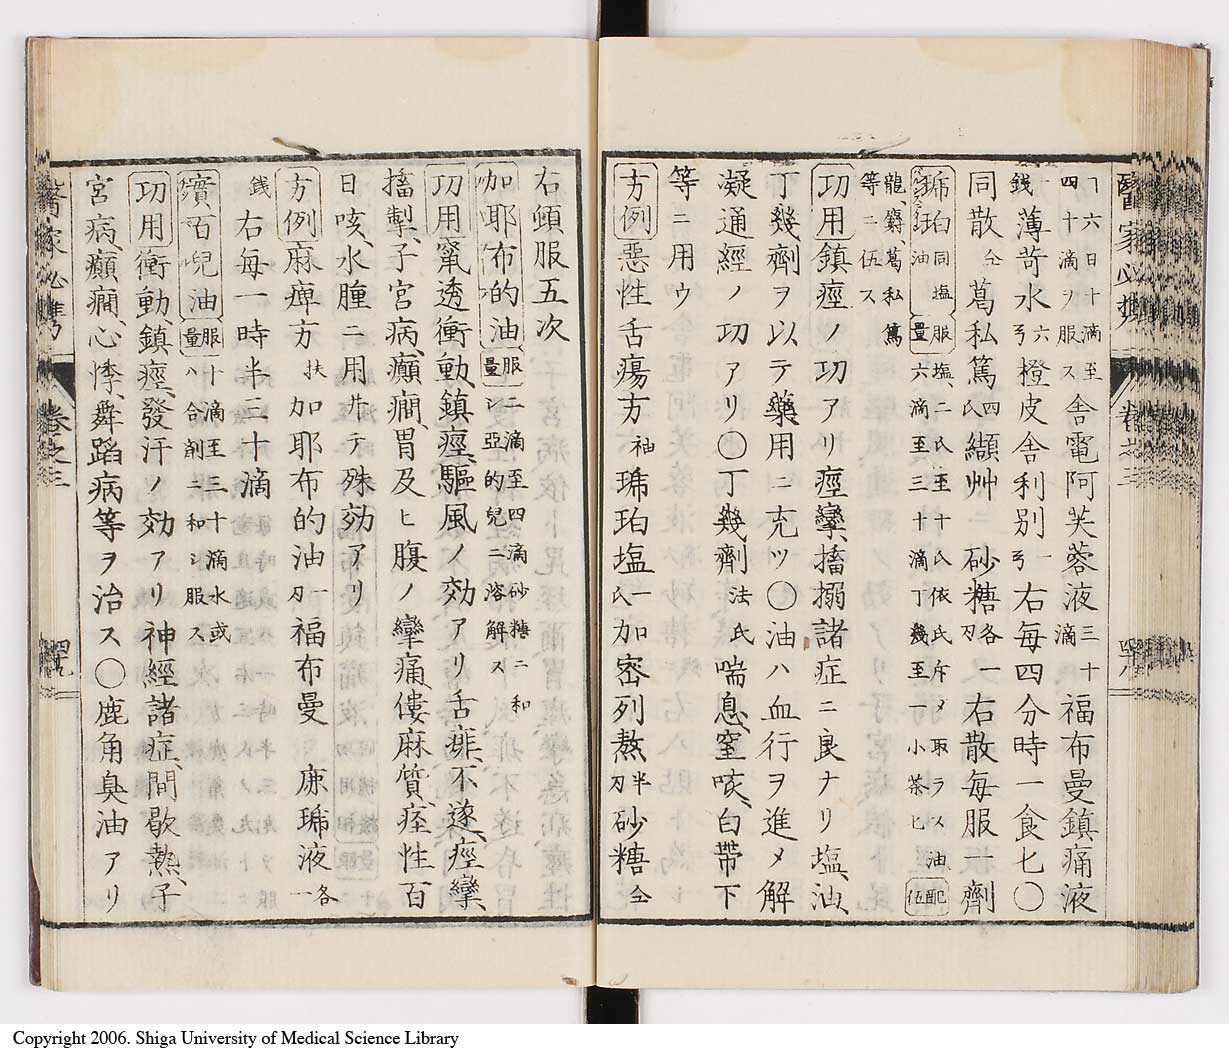 ㄱ六日十滴至
四十滴ヲ服ス舎電阿芙蓉液三十滴 福布曼鎮痛液
銭薄苛水六ㄢ橙皮舎利別一ㄢ右毎四分時一食匕〇
同散仝葛私篤四氏纈艸 砂糖各一刃 右散毎服一劑
琥珀油同塩 服量塩二氏至十氏依氏斥メ取ラス油
六滴至三十滴丁幾至一小茶匕 配伍
龍麝葛私篤
等ニ伍ス
功用鎮痙ノ功アリ痙攣搐搦諸症ニ良ナリ塩油、
丁幾劑ヲ以テ藥用ニ充ツ〇油ハ血行ヲ進メ解
凝通經ノ功アリ〇丁幾劑法氏喘息、窒咳、白帶下
等ニ用ウ
方例惡性舌瘍方袖琥珀塩一氏加密列熬半刃砂糖仝
右頓服五次
加耶布的油 服量二滴至四滴砂糖ニ和
シ亞的兒ニ溶解ス
功用竄透衝動、鎮痙、驅風ノ効アリ舌痱、不遂、痙攣、
搐掣、子宮病、癲癇、胃及ヒ腹ノ攣痛僂麻質、痓性百
日咳、水腫ニ用井テ殊効アリ
方例麻痺方扶加耶布的油一刃福布曼 鹿琥液各一
銭右毎一時半二十滴
實百兒油 服量十滴至三十滴水或
ハ合劑ニ和シ服ス
功用衝動、鎮痙、發汗ノ効アリ神經諸症、間歇熱、子
宮病、癲癇、心悸、舞蹈病等ヲ治ス〇鹿角臭油アリ
醫家必携 卷之三
Copyright 2006. Shiga University of Medical Science Library